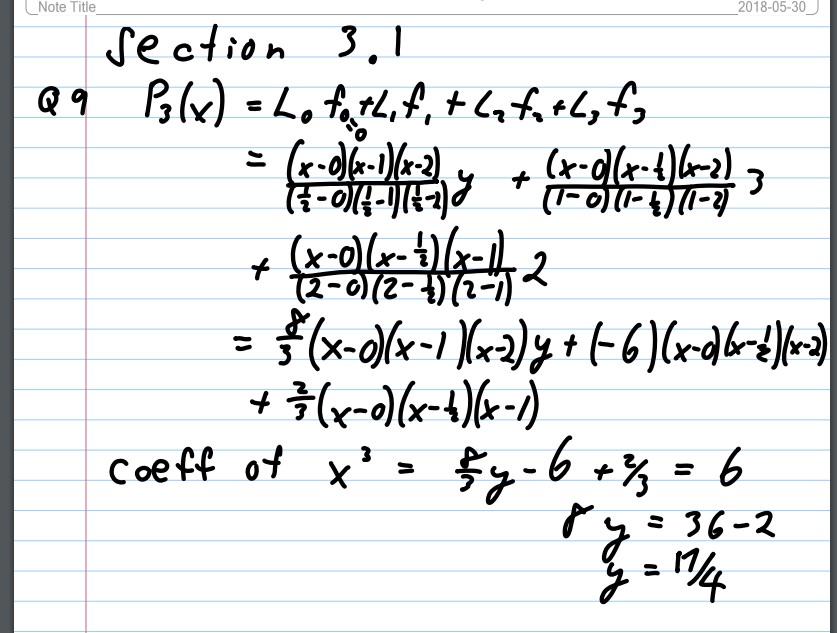 Note Title 2018-05-30
Section 3.1
Q9 P₃(x) = L₀f₀ + L₁f₁ + L₂f₂ + L₃f₃
0
= (x-0)(x-1)(x-2)/(½-0)(½-1)(½-2) y + (x-0)(x-½)(x-2)/(1-0)(1-½)(1-2) 3
+ (x-0)(x-½)(x-1)/(2-0)(2-½)(2-1) 2
= 8/3 (x-0)(x-1)(x-2)y + (-6)(x-0)(x-½)(x-2)
+ 2/3 (x-0)(x-½)(x-1)
coeff of x³ = 8/3 y - 6 + 2/3 = 6
8y = 36-2
y = 17/4